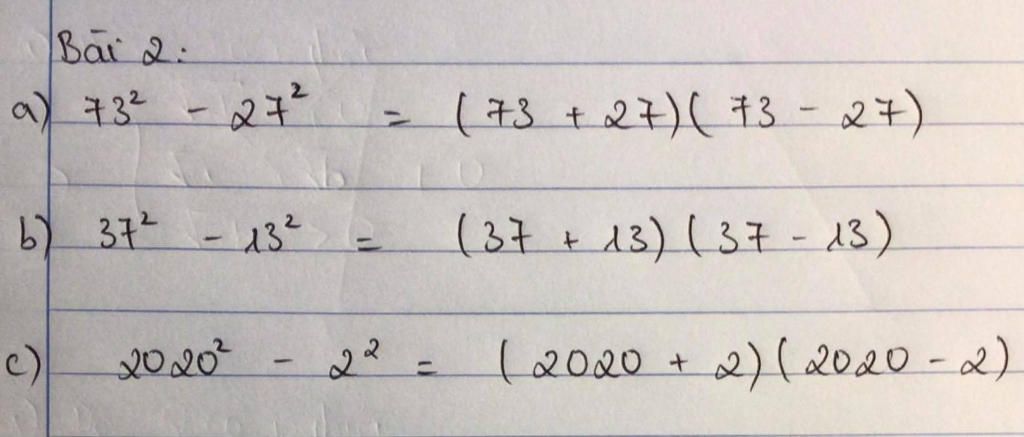 Bài 2:
a) 73² - 27² = (73 + 27)(73 - 27)
b) 37² - 13² = (37 + 13)(37 - 13)
c) 2020² - 2² = (2020 + 2)(2020 - 2)